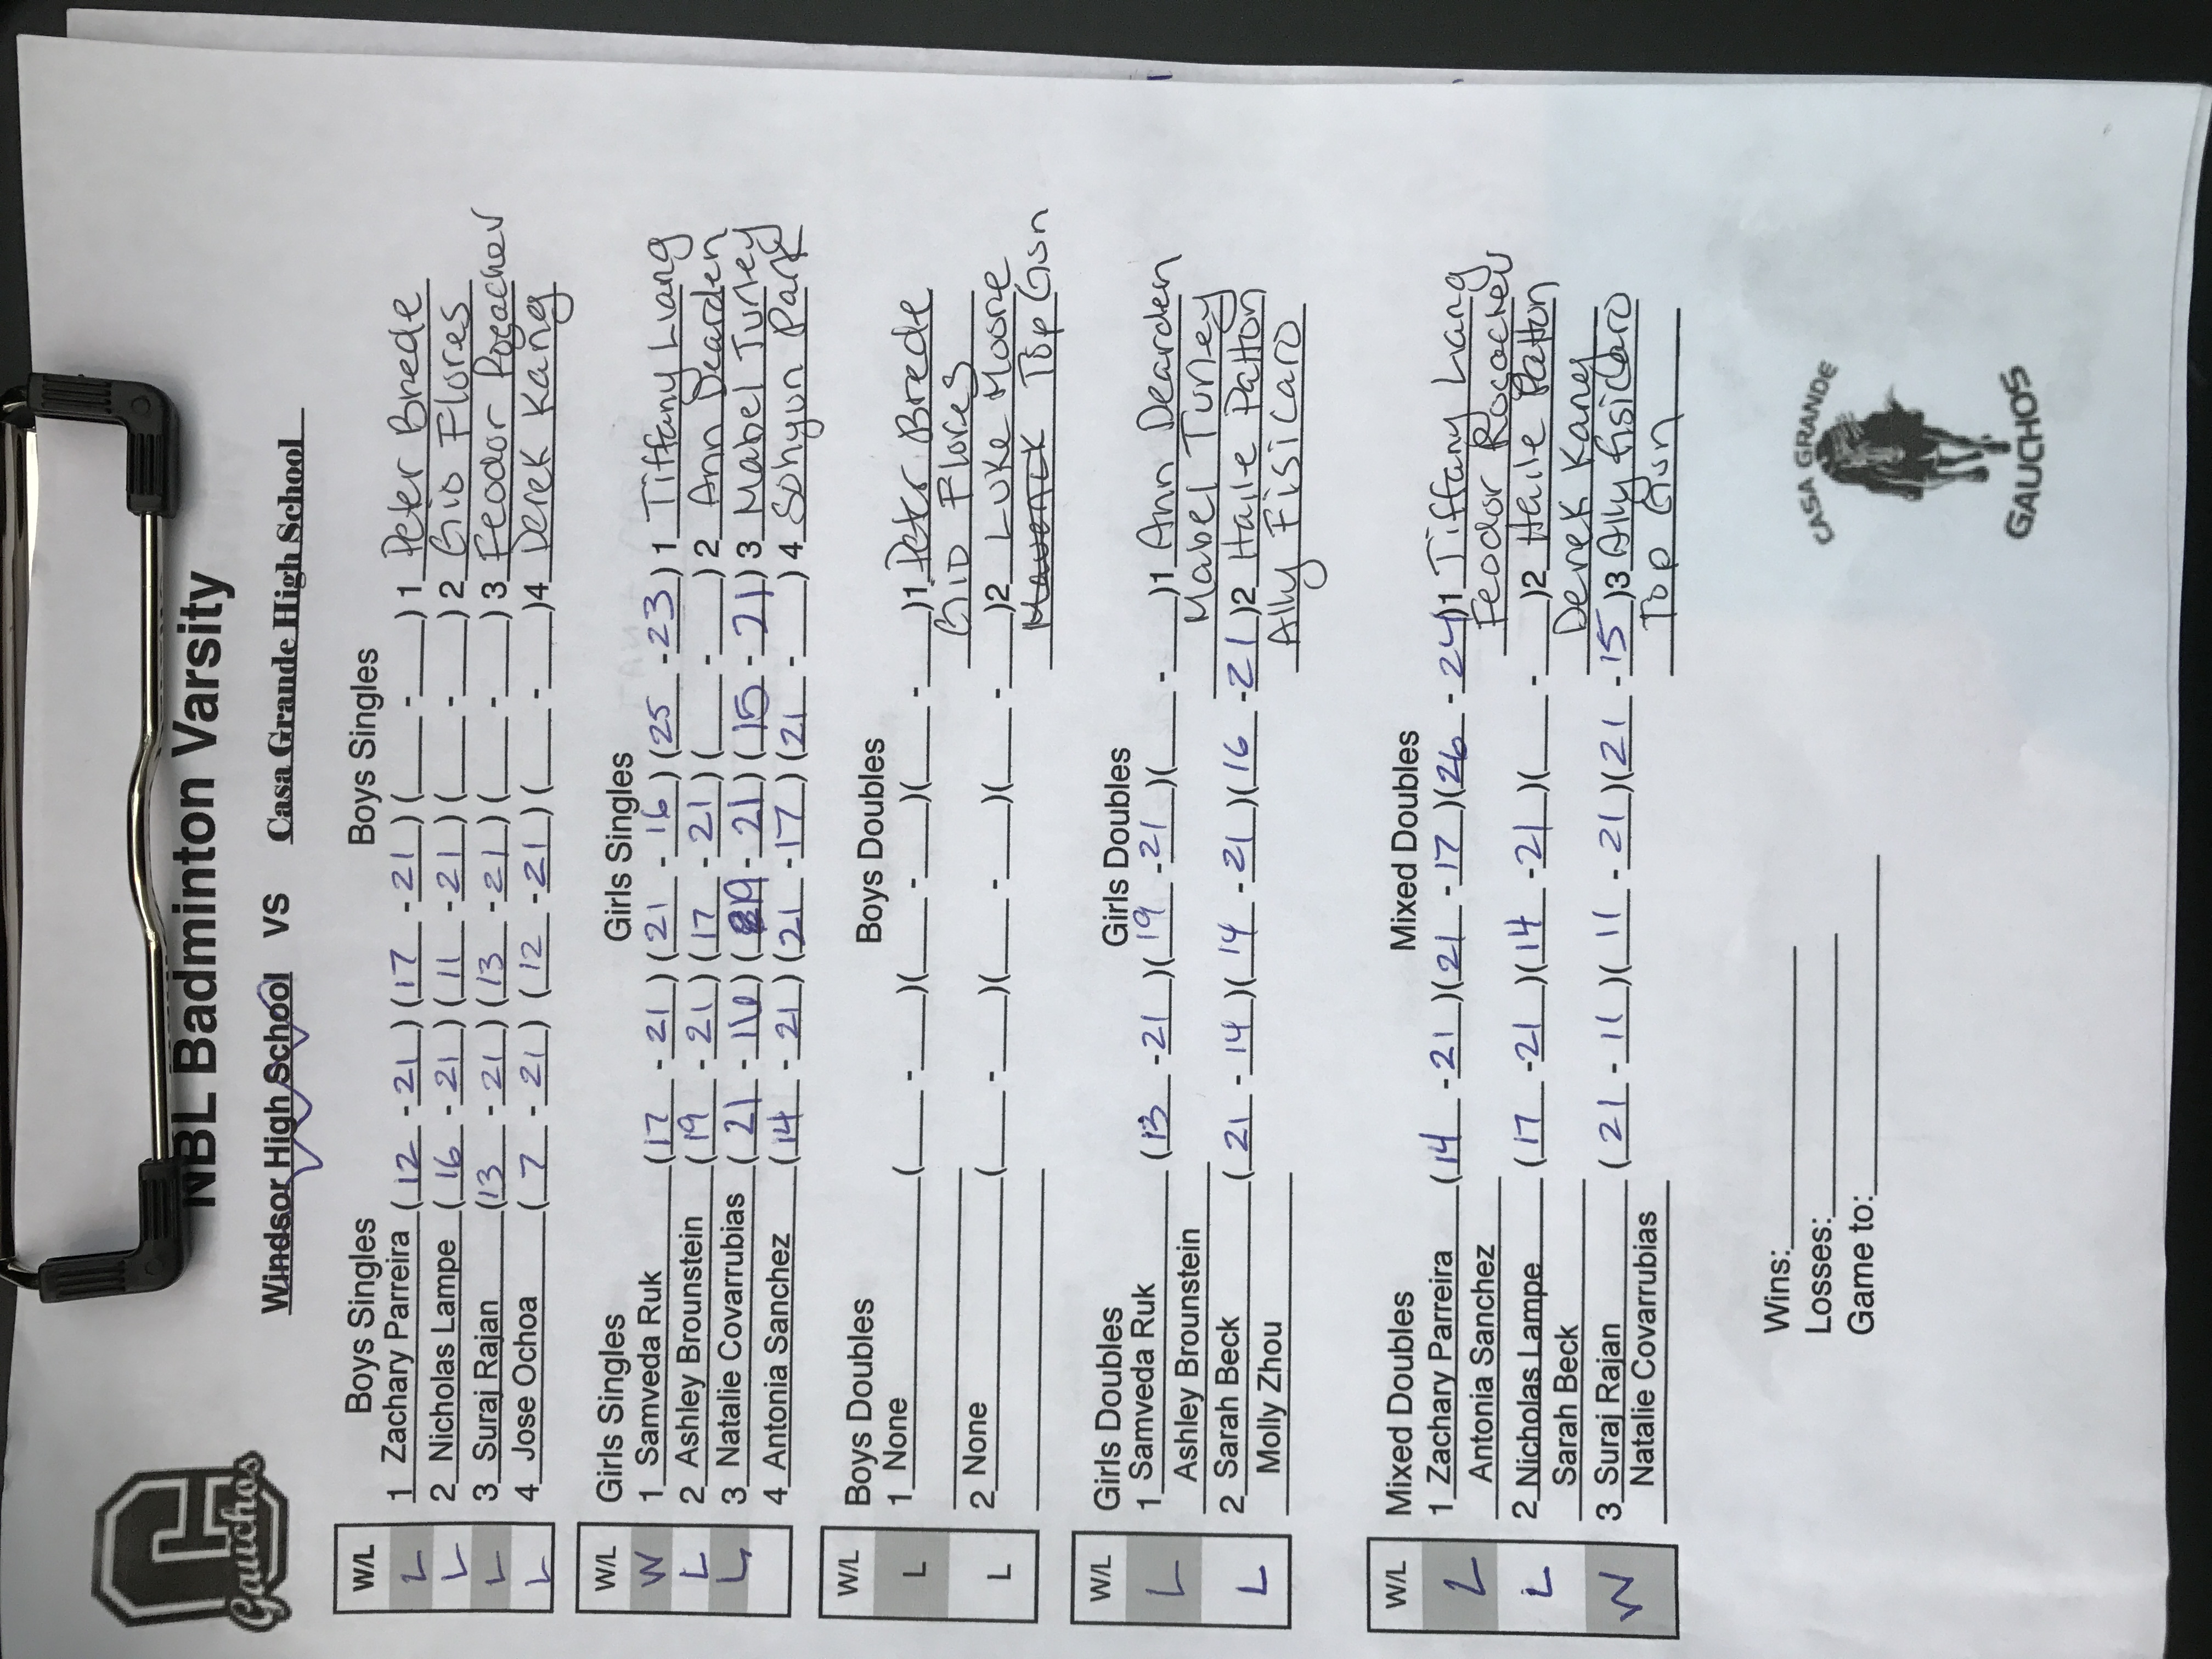 C
Gauchos
NBL Badminton Varsity
Windsor High School VS Casa Grande High School
W/L Boys Singles Boys Singles
L 1 Zachary Parreira (12 - 21) (17 - 21) (___ - ___) 1 Peter Brede
L 2 Nicholas Lampe (16 - 21) (11 - 21) (___ - ___) 2 Gio Flores
L 3 Suraj Rajan (13 - 21) (13 - 21) (___ - ___) 3 Feodor Pogachev
L 4 Jose Ochoa (7 - 21) (12 - 21) (___ - ___) 4 Derek Kang
W/L Girls Singles Girls Singles
W 1 Samveda Ruk (17 - 21) (21 - 16) (25 - 23) 1 Tiffany Liang
L 2 Ashley Brounstein (19 - 21) (17 - 21) (___ - ___) 2 Ann Dearden
L 3 Natalie Covarrubias (21 - 16) (19 - 21) (15 - 21) 3 Mabel Turley
4 Antonia Sanchez (14 - 21) (21 - 17) (21 - ___) 4 Sohyun Park
W/L Boys Doubles Boys Doubles
L 1 None (___ - ___)(___ - ___)(___ - ___)1 Peter Brede
Gio Flores
L 2 None (___ - ___)(___ - ___)(___ - ___)2 Luke Moore
Maverick Top Gun
W/L Girls Doubles Girls Doubles
L 1 Samveda Ruk (13 - 21)(19 - 21)(___ - ___)1 Ann Dearden
Ashley Brounstein Mabel Turley
L 2 Sarah Beck (21 - 14)(14 - 21)(16 - 21)2 Haile Patton
Molly Zhou Ally Fisicaro
W/L Mixed Doubles Mixed Doubles
L 1 Zachary Parreira (14 - 21)(21 - 17)(26 - 24)1 Tiffany Liang
Antonia Sanchez Feodor Pogachev
L 2 Nicholas Lampe (17 - 21)(14 - 21)(___ - ___)2 Haile Patton
Sarah Beck Derek Kang
W 3 Suraj Rajan (21 - 11)(11 - 21)(21 - 15)3 Ally Fisicaro
Natalie Covarrubias Top Gun
Wins:
Losses:
Game to:
CASA GRANDE
GAUCHOS